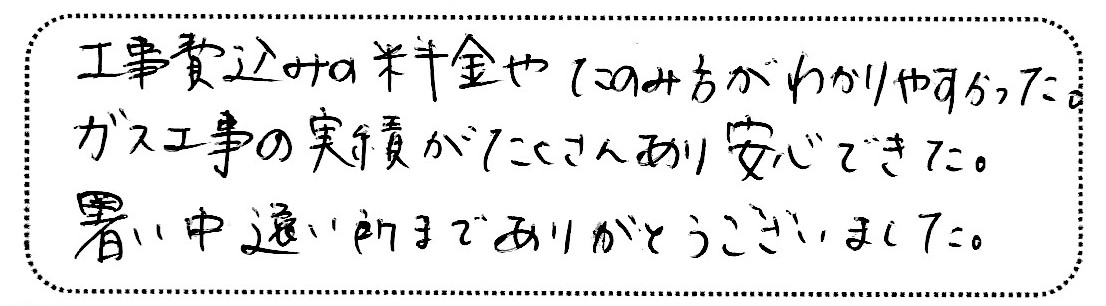 工事費込みの料金やたのみ方がわかりやすかった。
ガス工事の実績がたくさんあり安心できた。
暑い中遠い所までありがとうございました。